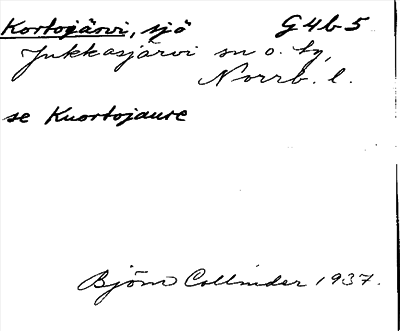 Kortojärvi, sjö G4b5
Jukkasjärvi sn o. tg,
Norrb. l.
se Kuortojaure
Björn Collinder 1937.